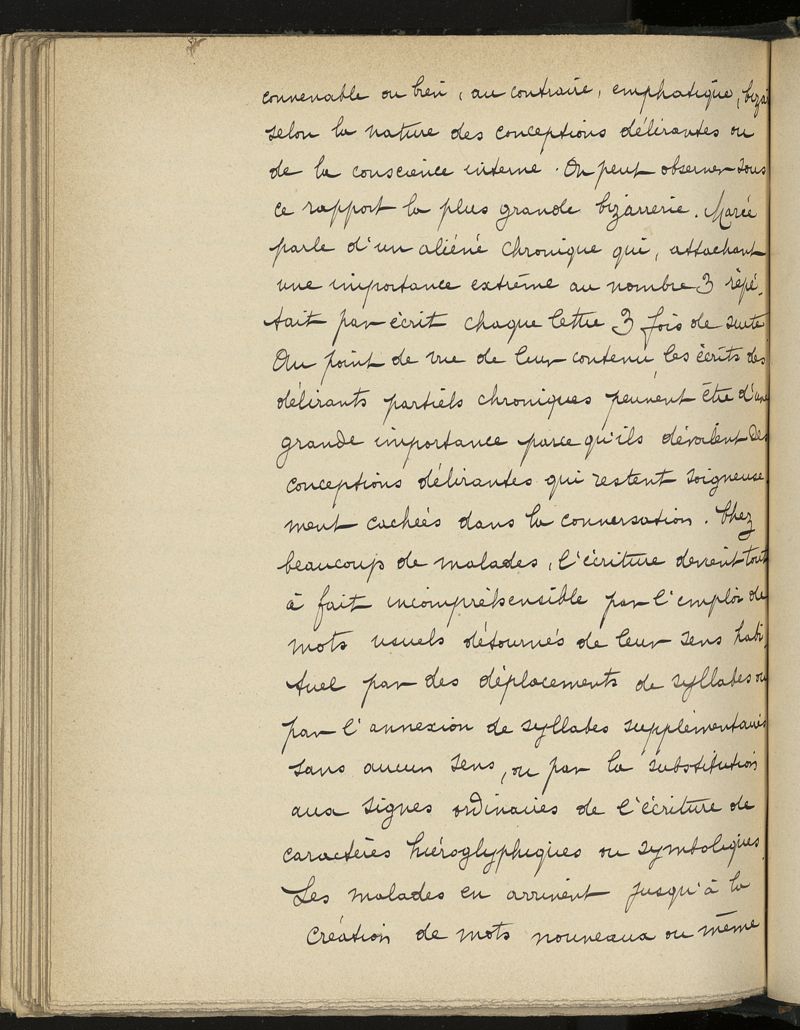 convenable ou bien, au contraire, emphatique, biza
selon la nature des conceptions délirantes ou
de la conscience interne. On peut observer sous
ce rapport la plus grande bizarrerie. Marcé
parle d'un aliéné chronique qui, attachant
une importance extrême au nombre 3 répé-
tait par écrit chaque lettre 3 fois de suite
Au point de vue de leur contenu les écrits des
délirants partiels chroniques peuvent être d'une
grande importance parce qu'ils dévoilent des
conceptions délirantes qui restent soigneuse
ment cachées dans la conversation. Chez
beaucoup de malades, l'écriture devient tout
à fait incompréhensible par l'emploi de
mots usuels détournés de leur sens habi-
tuel par des déplacements de syllabes ou
par l'annexion de syllabes supplémentaires
sans aucun sens, ou par la substitution
aux signes ordinaires de l'écriture de
caractères hiéroglyphiques ou symboliques.
Les malades en arrivent jusqu'à la
création de mots nouveaux ou même